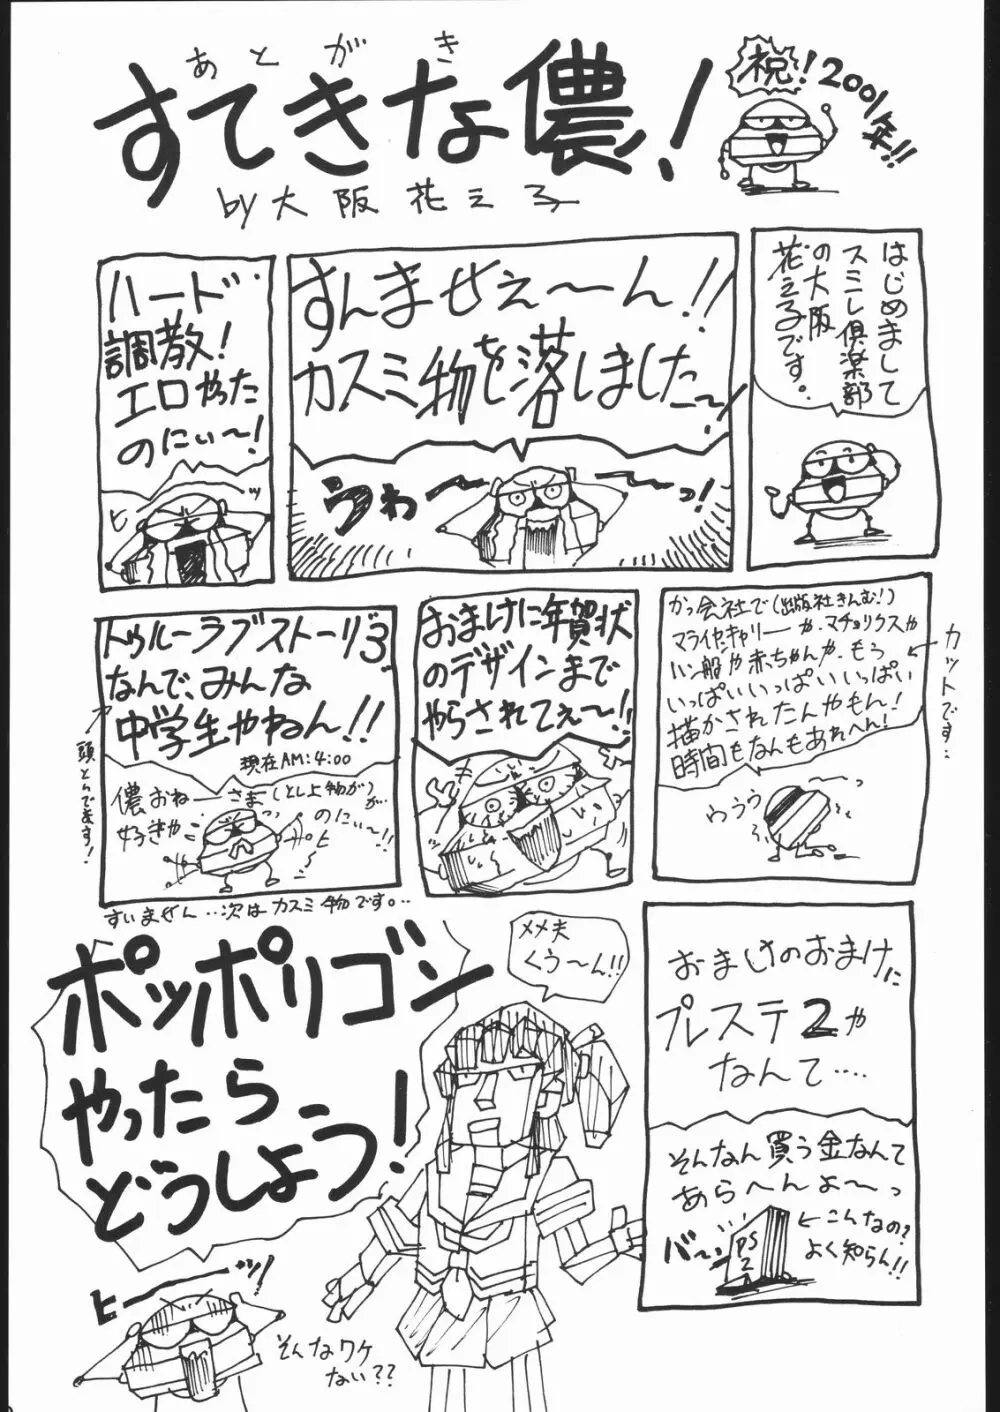 あとがき
すてきな儂!
祝!2001年!!
by 大阪花え子
はじめまして
スミレ倶楽部
の大阪
花え子です。
すんませぇ〜ん!!
カスミ物を落しました〜!
うわ〜〜っ!
ハード
調教!
エロやった
のにぃ〜!
ヒーッ
かっ会社で(出版社きんむ!)
マライヤ・キャリーや、マチョリクスや
ハン般や赤ちゃんや、もう
いっぱいいっぱいいっぱい
描かされたんやもん!
時間もなんもあれへん!
カットです・・
わううう
おまけに年賀状
のデザインまで
やらされてぇ〜!!
トゥルーラブストーリー3
なんで、みんな
中学生やねん!!
現在AM:4:00
頭とんでます!
儂おねーさま(とし上物が)が…
好きや
のにぃ〜!!
ヒー
すいません‥次はカスミ物です。‥
おまけのおまけに
プレステ2や
なんて‥‥
そんなん買う金なんて
あらへんょ〜っ
バーン
PS2
←こんなの?
よく知らん!!
メメ夫
くぅ〜ん!!
ポッポリゴン
やったら
どうしよう!
ヒーーッ!
そんなワケ
ない??